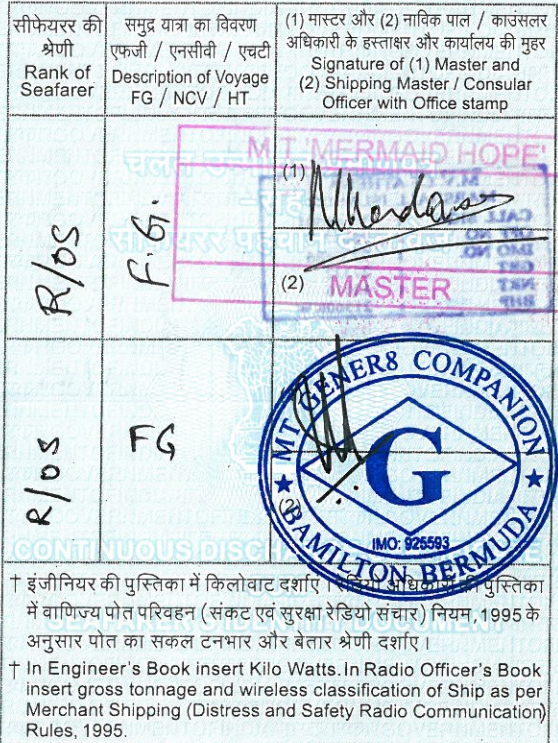 सीफेयरर की
श्रेणी
Rank of
Seafarer
समुद्र यात्रा का विवरण
एफजी / एनसीवी / एचटी
Description of Voyage
FG / NCV / HT
(1) मास्टर और (2) नाविक पाल / काउंसलर
अधिकारी के हस्ताक्षर और कार्यालय की मुहर
Signature of (1) Master and
(2) Shipping Master / Consular
Officer with Office stamp
R/OS
F.G.
M.T 'MERMAID HOPE'
(1)
CALL
OFF NO
IMO NO.
GRT
NRT
BHP
(2)
MASTER
R/OS
FG
MT GENER8 COMPANION
G
(2)
IMO: 925593
BAMILTON BERMUDA
CONTINUOUS DISCHA
SEAFARER'S IDENTITY DOCUMENT
† इंजीनियर की पुस्तिका में किलोवाट दर्शाएं । रेडियो अधिकारी की पुस्तिका
में वाणिज्य पोत परिवहन (संकट एवं सुरक्षा रेडियो संचार) नियम, 1995 के
अनुसार पोत का सकल टनभार और बेतार श्रेणी दर्शाए ।
† In Engineer's Book insert Kilo Watts.In Radio Officer's Book
insert gross tonnage and wireless classification of Ship as per
Merchant Shipping (Distress and Safety Radio Communication)
Rules, 1995.